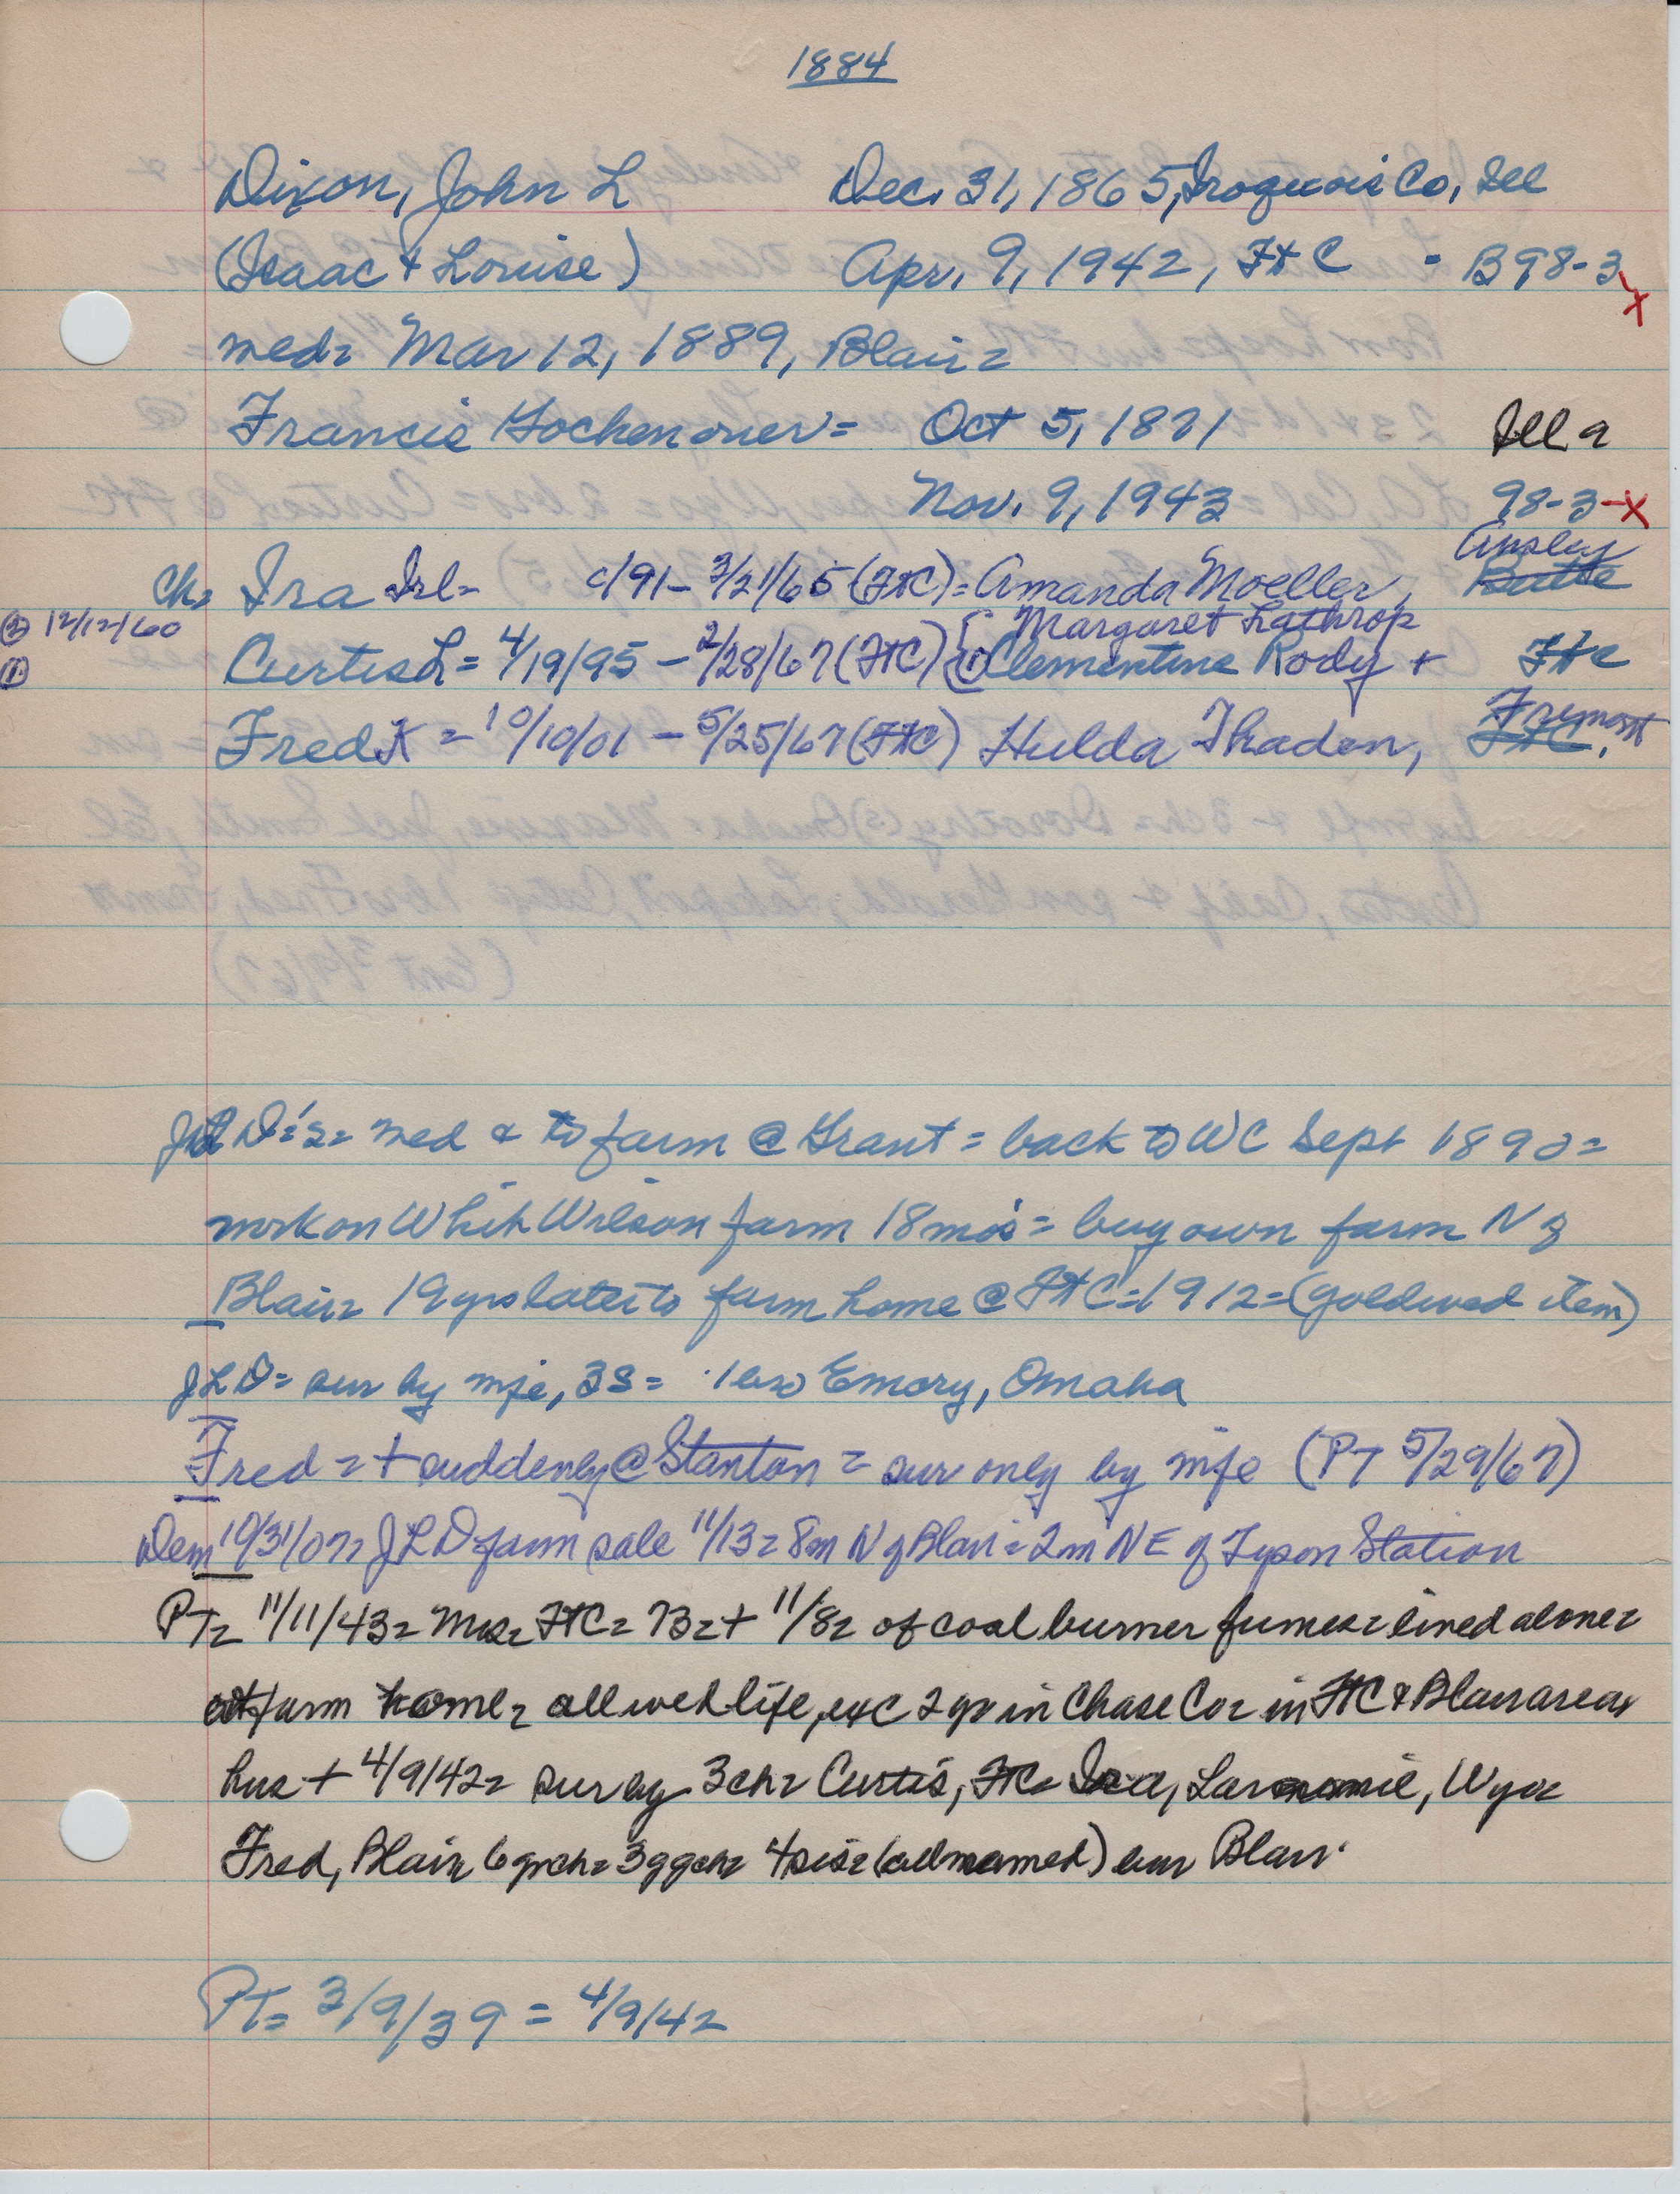 1884
Dixon, John L Dec. 31, 1865, Iroquois Co, Ill
(Isaac & Louise) Apr. 9, 1942, FtC - B98-3 x
wed= Mar 12, 1889, Blair=
Francis Gochenouer= Oct 5, 1871 Ill a
Nov. 9, 1943 98-3-x
Ainsley
Ch= Ira Irl= c/91- 3/21/65 (FtC)= Amanda Moeller, Butte
② 12/12/60 Margaret Lathrop
① Curtis L= 4/19/95 - 2/28/67 (FtC) ① Clementine Rody + FtC
Fremont
Fred K = 10/10/01 - 5/25/67 (FtC) Hulda Thaden, FtC.
JLD's= wed & to farm @ Grant = back to WC Sept 1890=
work on Whit Wilson farm 18 mos = buy own farm N of
Blair= 19 yrs later to farm home @ FtC=1912=(goldwed item)
JLD= sur by wife, 3s= 1 bro Emory, Omaha
Fred = + suddenly @ Stanton = sur only by wife (PT 5/29/67)
Dem 10/31/07= JLD farm sale 11/13= 8m N of Blair= 2m NE of Tyson Station
PT= 11/11/43= Mrs= FtC= 73=+ 11/8= of coal burner fumes= lived alone=
at farm home= all wed life, exc 2 yr in Chase Co= in FtC & Blair area=
hus + 4/9/42= sur by 3 ch= Curtis, FtC= Ira, Laramie, Wyo=
Fred, Blair 6 grch= 3 ggch= 4 sis= (all named) bur Blair
PT= 3/9/39 = 4/9/42